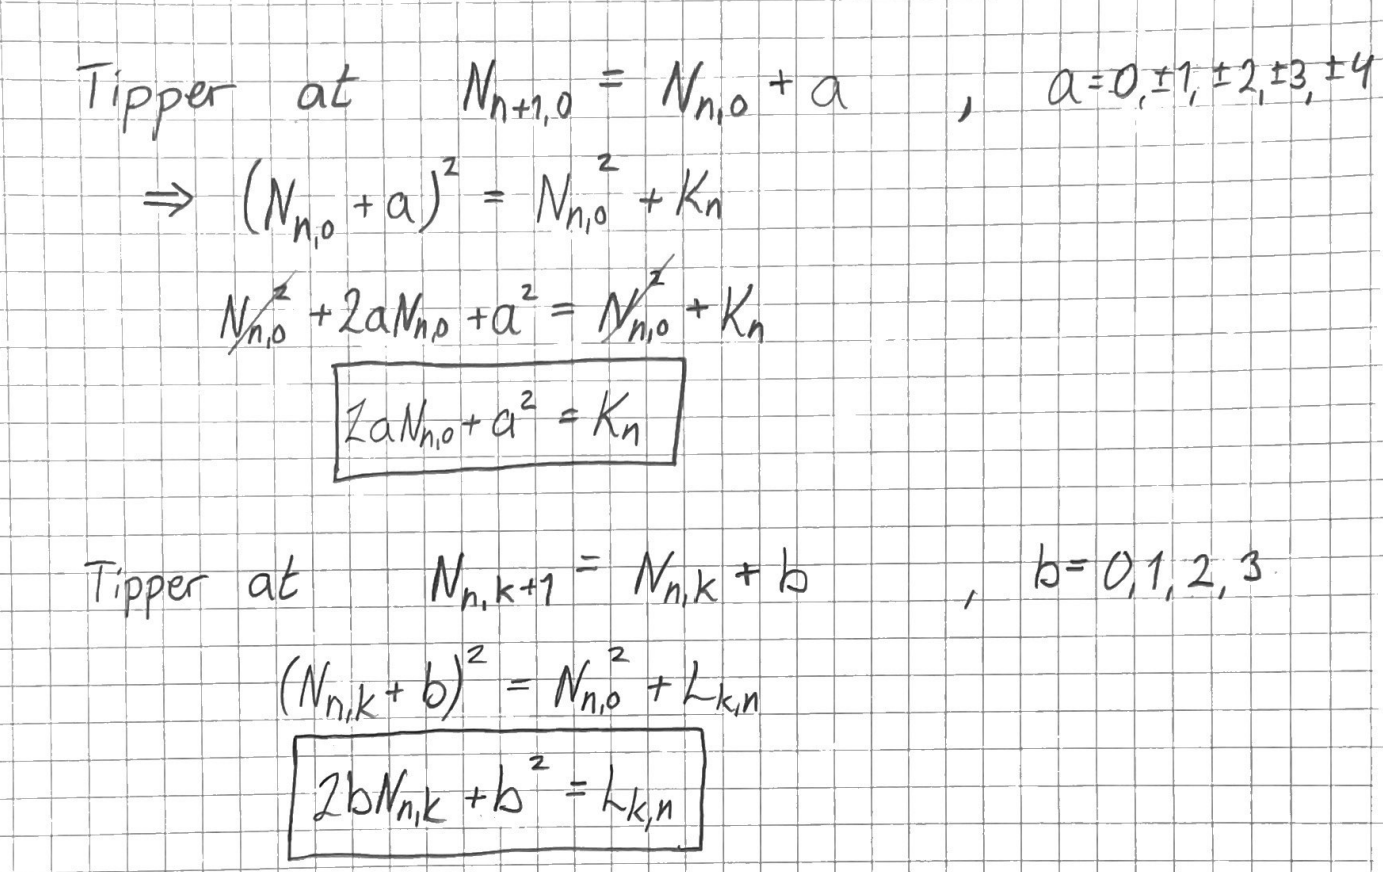 Tipper at N_{n+1,0} = N_{n,0} + a , a=0,±1,±2,±3,±4
⇒ (N_{n,0} + a)² = N_{n,0}² + K_n
N_{n,0}² + 2aN_{n,0} + a² = N_{n,0}² + K_n
2aN_{n,0} + a² = K_n
Tipper at N_{n,k+1} = N_{n,k} + b , b= 0,1,2,3
(N_{n,k} + b)² = N_{n,0}² + L_{k,n}
2bN_{n,k} + b² = L_{k,n}